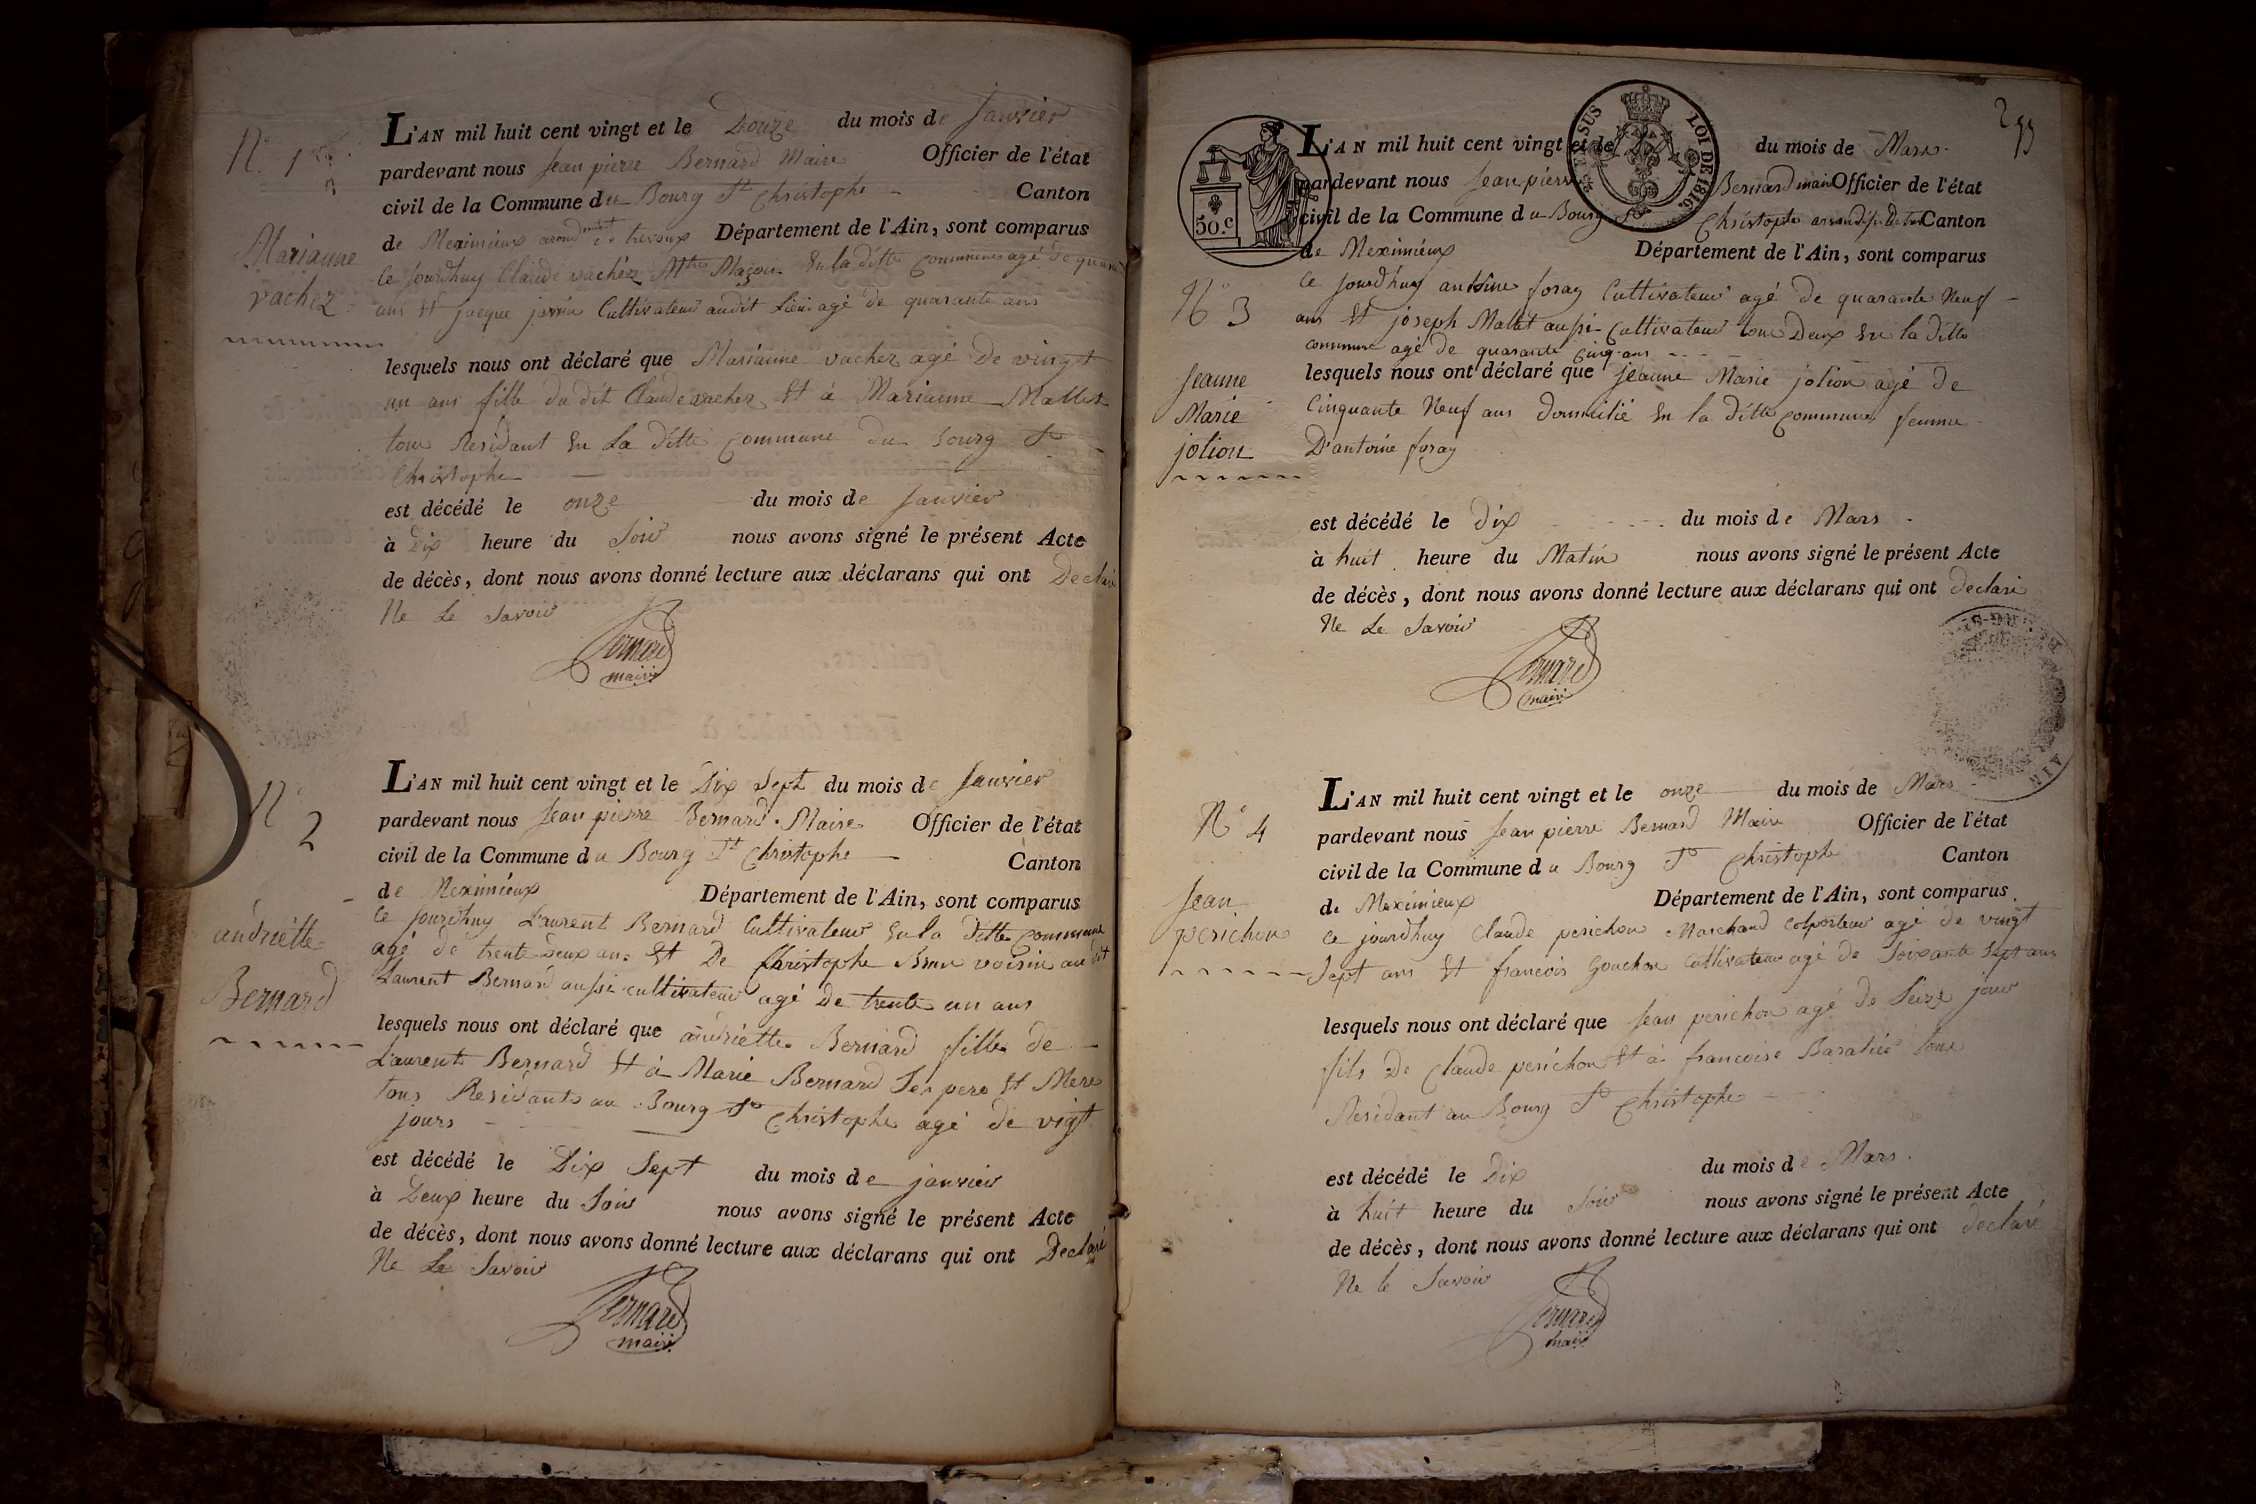 N.° 1er
Marianne
vachez
L'AN mil huit cent vingt et le Douze du mois de Janvier
pardevant nous Jean pierre Bernard Maire Officier de l'état
civil de la Commune du Bourg St Christophe Canton
de Meximieux arond.ment de trevoux Département de l'Ain, sont comparus
Ce Jourdhuy Claude vachez Mtre Maçon En la ditte commune agé de quarante
ans Et jacque janin Cultivateur audit Lieu agé de quarante ans
lesquels nous ont déclaré que Marianne vachez agé De vingt
un ans fille du dit Claude vachez Et à Marianne Mallet
tous Residant En La ditte commune du Bourg St
Christophe
est décédé le onze du mois de Janvier
à Dix heure du Soir nous avons signé le présent Acte
de décès, dont nous avons donné lecture aux déclarans qui ont Declaré
Ne Le Savoir
Bernard
maire
N.° 2
andriette
Bernard
L'AN mil huit cent vingt et le Dix Sept du mois de Janvier
pardevant nous Jean pierre Bernard Maire Officier de l'état
civil de la Commune du Bourg St Christophe Canton
de Meximieux Département de l'Ain, sont comparus
Ce Jourdhuy Laurent Bernard Cultivateur En la ditte commune
agé de trente Deux ans Et De Christophe Brun voisin au dit
Laurent Bernard aussi cultivateur agé De trente un ans
lesquels nous ont déclaré que andriette Bernard fille de
Laurent Bernard Et à Marie Bernard Ses pere Et Mere
tous Residants au Bourg St Christophe agé de vigt
jours
est décédé le Dix Sept du mois de janvier
à Deux heure du Soir nous avons signé le présent Acte
de décès, dont nous avons donné lecture aux déclarans qui ont Declaré
Ne Le Savoir
Bernard
maire
50.c
EN SUS
LOI DE 1816
L'AN mil huit cent vingt et le du mois de Mars
pardevant nous Jean pierre Bernard maire Officier de l'état
civil de la Commune du Bourg St Christophe Canton
de Meximieux Département de l'Ain, sont comparus
N° 3
Jeanne
Marie
jolion
Ce Jourdhuy antoine foray Cultivateur agé de quarante Neuf
ans Et joseph Mallet aussi Cultivateur tous Deux En la Ditte
commune agé De quarante cinq ans
lesquels nous ont déclaré que Jeanne Marie jolion agé De
Cinquante Neuf ans domicilié En la ditte commune femme
D'antoine foray
est décédé le dix du mois de Mars
à huit heure du Matin nous avons signé le présent Acte
de décès, dont nous avons donné lecture aux déclarans qui ont declaré
Ne Le Savoir
Bernard
maire
N° 4
Jean
perichon
L'AN mil huit cent vingt et le onze du mois de Mars
pardevant nous Jean pierre Bernard Maire Officier de l'état
civil de la Commune du Bourg St Christophe Canton
de Meximieux Département de l'Ain, sont comparus
Ce jourdhuy Claude perichon Marchand Colporteur agé de vingt
Sept ans Et francois Gonchon Cultivateur agé de Soixante Sept ans
lesquels nous ont déclaré que Jean perichon agé de Seize jour
fils De Claude perichon Et à francoise Baralier tous
Residant au Bourg St Christophe
est décédé le Dix du mois de Mars
à huit heure du Soir nous avons signé le présent Acte
de décès, dont nous avons donné lecture aux déclarans qui ont declaré
Ne le Savoir
Bernard
maire